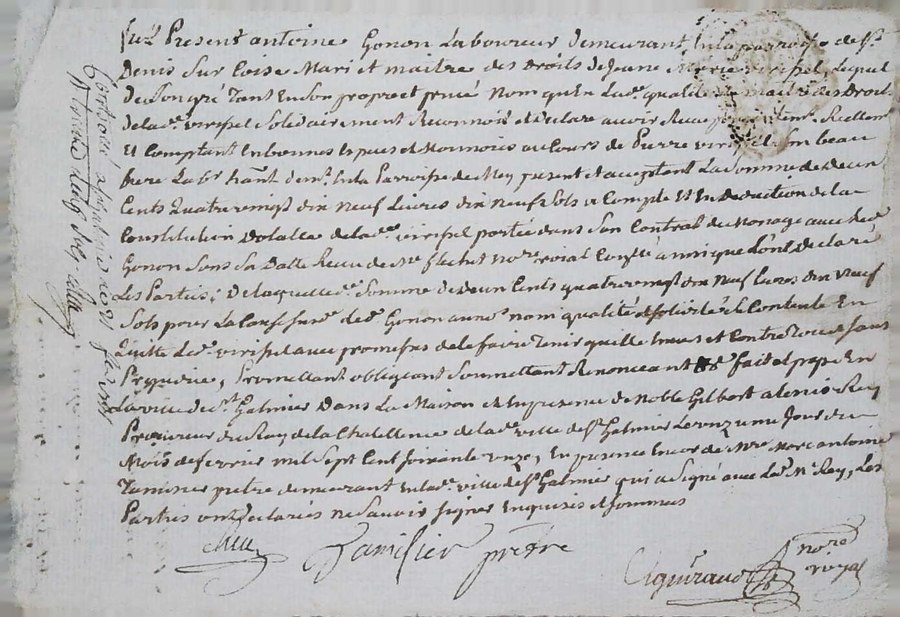 fut Present antoine Gonon Laboureur demeurant en la parroisse de St
Denis Sur Coise Mari et maitre des Droits de Jeane Marie virissel, Lequel
de Son gré Tant En Son propre et privé Nom qu'En Lade qualité de maitre des Droits
de lade virissel Solidairement Reconnoit et declare avoir Receu Reellemt
Et Comptant En bonnes Especes et Monnoies au Cours de Pierre virissel Son beau
frere Labr hant demt En la Parroisse de present et acceptant La Somme de deux
Cents Quatre vingt dix Neuf Livres dix Neuf Sols a Compte Et En deduction de la
Constitution Dotalle de lade virissel portée dans Son Contrat de Mariage avec led
Gonon Sous Sa Datte Receu de Me notre roial ainsi que L'ont declaré
Les Parties; De laquelle de Somme de deux Cents quatre vingt dix Neuf Livres dix Neuf
Sols pour La Cause de Gonon aux nom qualité et solidité Se Contente En
Quitte Led virissel avec promesses de le faire Tenir quitte Envers et Contre Tous et Sans
Prejudice, Promettant obligeant Soumettant Renonceant &c fait et passé En
La ville de St Galmier Dans La Maison et En presence de Noble Gilbert Rey
Procureur du Roy de la Chatellenie de lade ville de St Galmier Le onzieme Jour du
Mois de fevrier mil Sept Cent Soixante onze, En presence Encor de Mre Marc antoine
pretre demeurant En lade ville de St Galmier qui a Signé avec Led Mr Rey, Les
Parties ont declarées ne Savoir Signer Enquises et Sommées
pretre
notre
royal